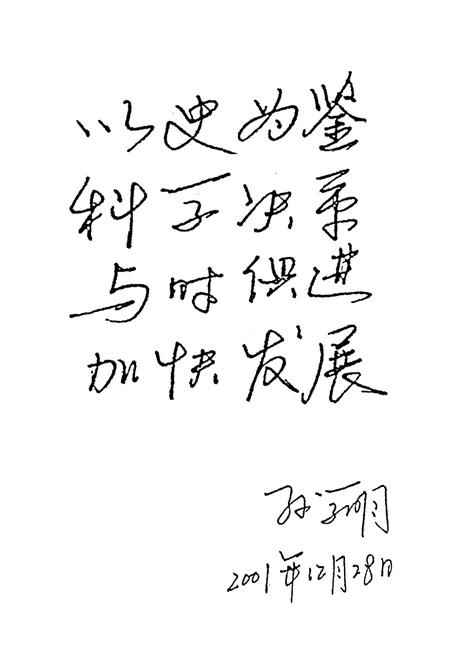 以史为鉴
科学决策
与时俱进
加快发展
孙学明
2001年12月28日